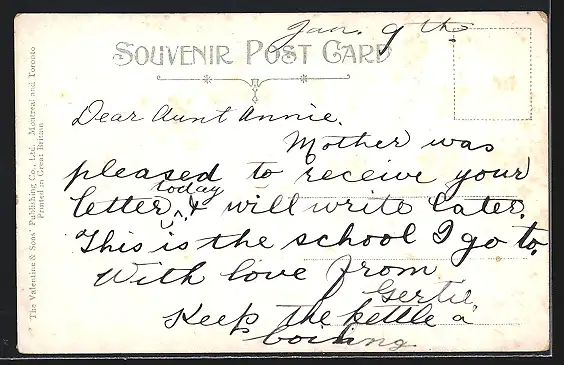 Jan. 9th
SOUVENIR POST CARD
Dear Aunt Annie.
Mother was
pleased to receive your
letter, today & will write later.
This is the school I go to.
With love from
Gertie
Keep the kettle a
boiling
The Valentine & Sons' Publishing Co., Ltd. Montreal and Toronto
Printed in Great Britain